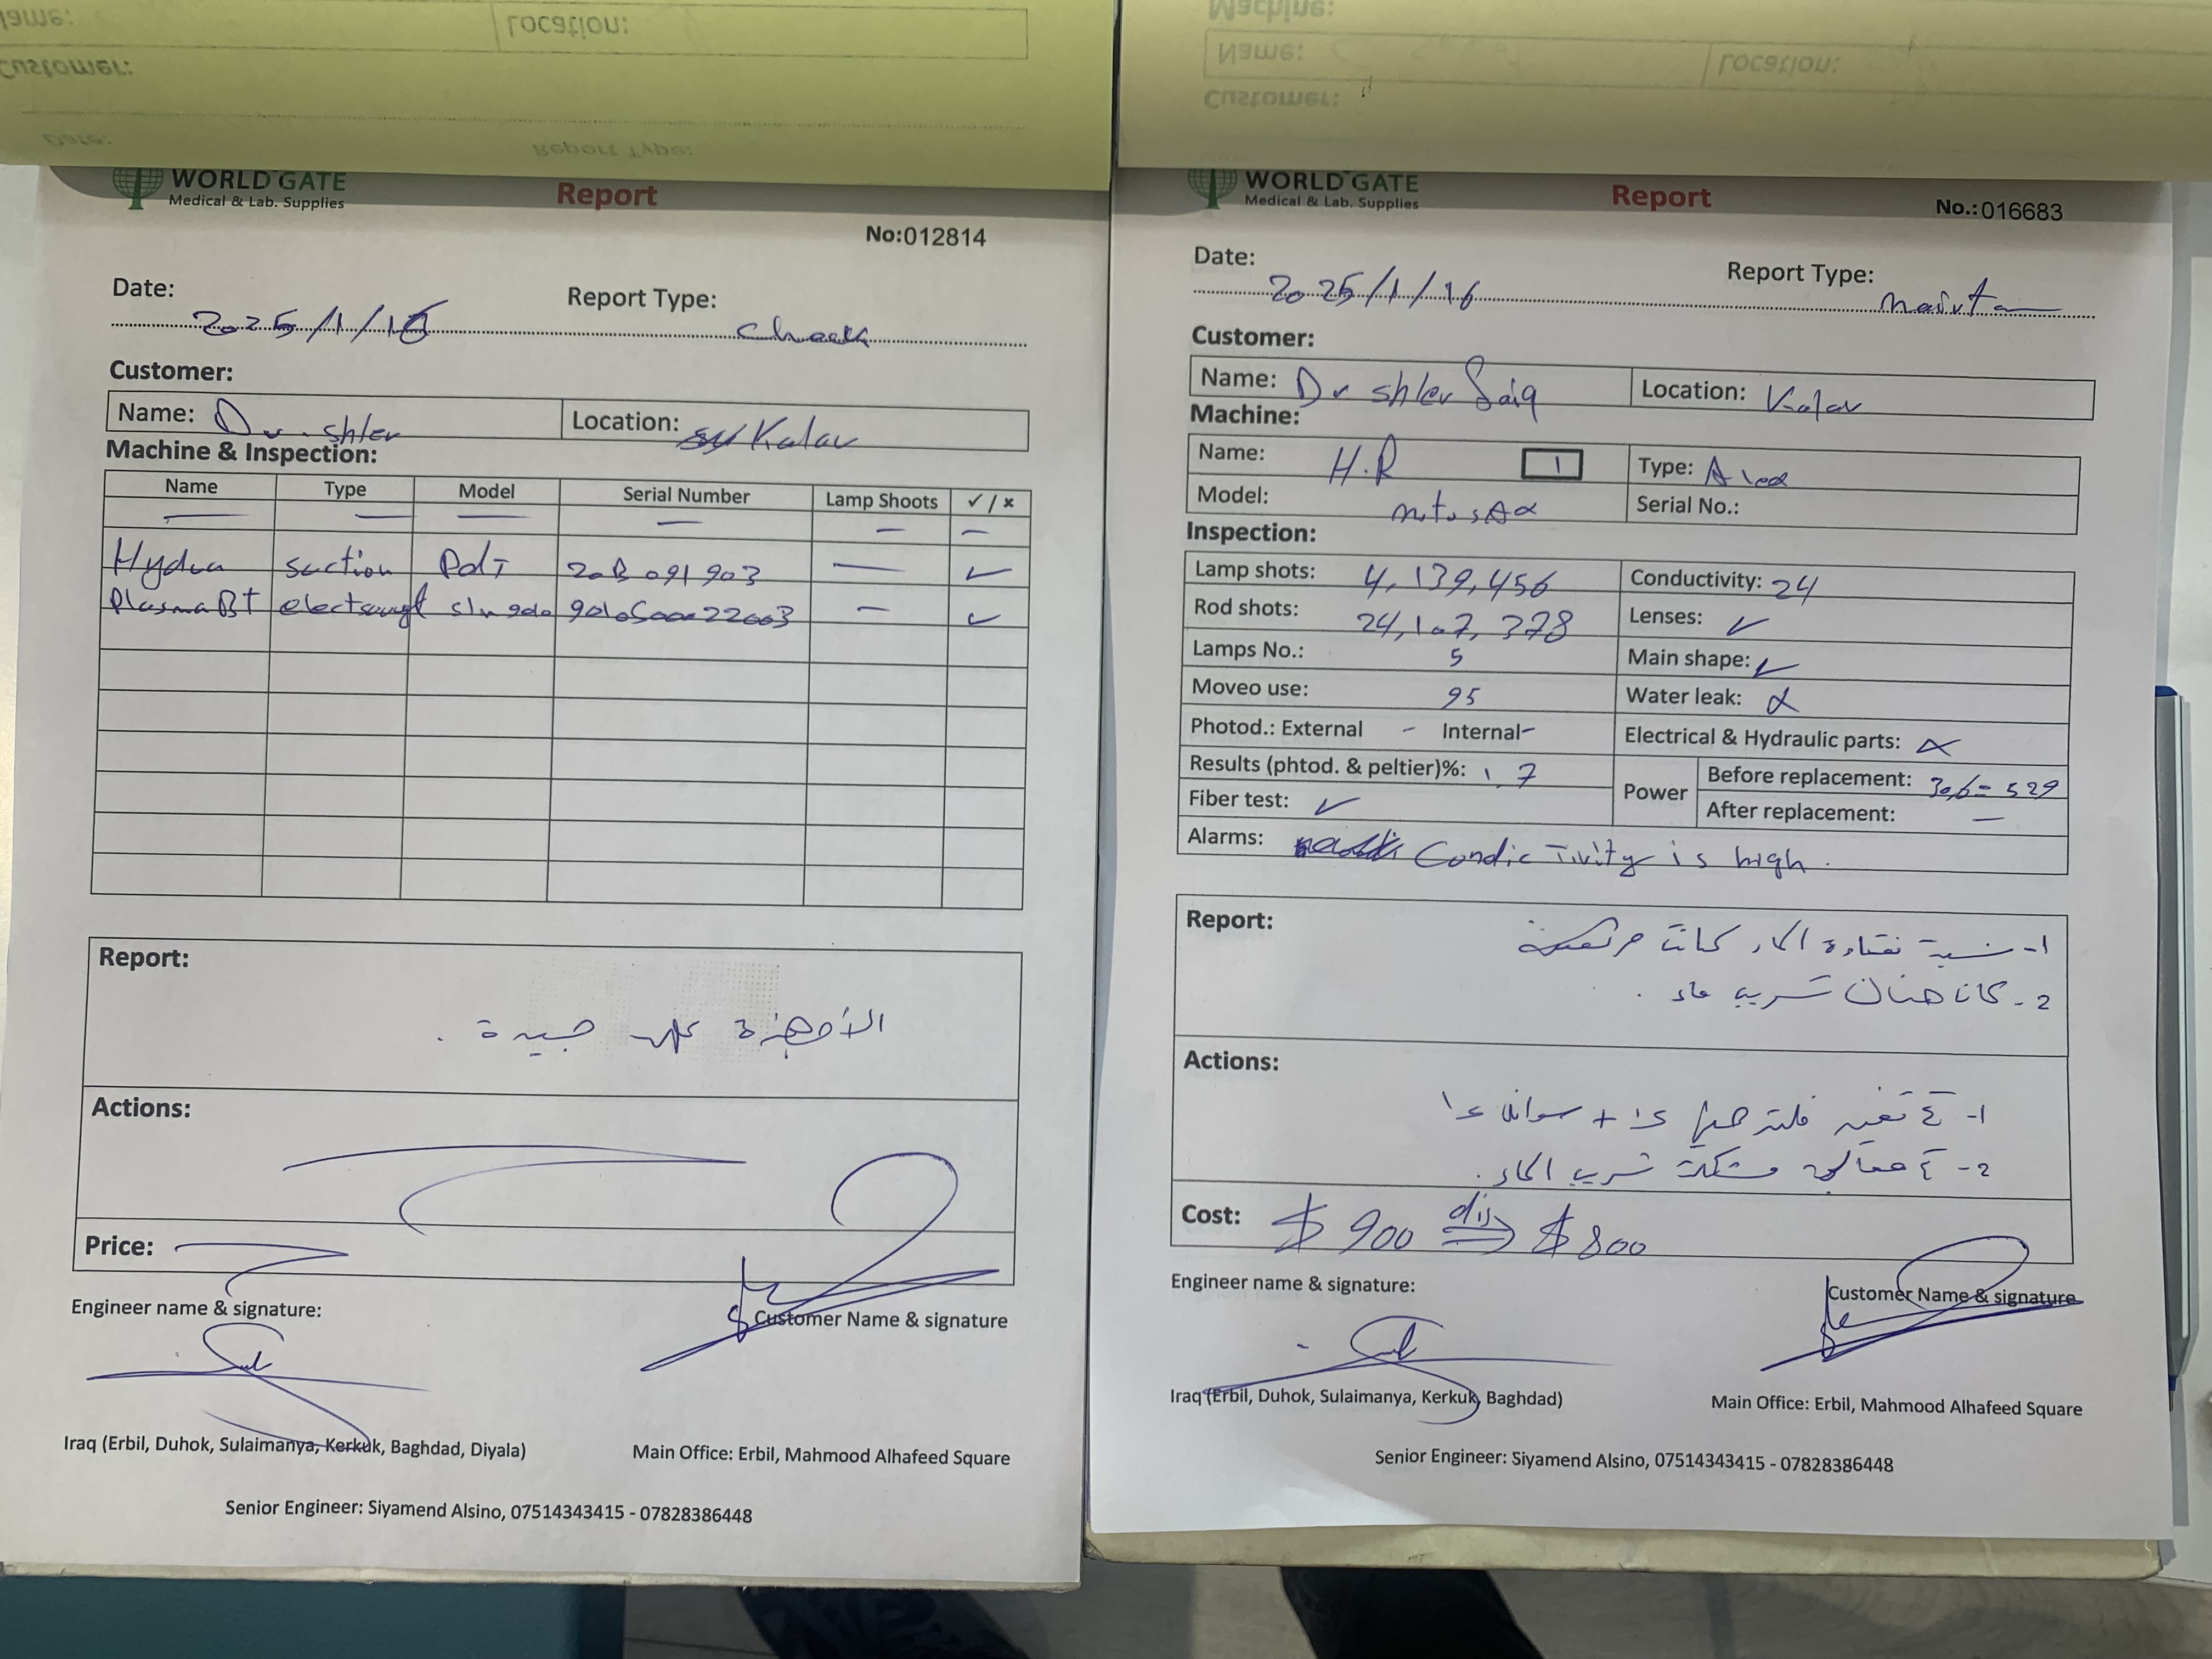 Location:
Customer:
Date:
Report Type:
WORLD GATE
Medical & Lab. Supplies
Report
No:012814
Date: 2025/1/16
Report Type: Check
Customer:
Name: Dr. shler
Location: Kalar
Machine & Inspection:
Name Type Model Serial Number Lamp Shoots ✓ / ×
— — — — — —
Hydra suction PdT 20B091903 — ✓
PlasmaBT — ✓
Report:
الأجهزة جيدة .
Actions:
Price:
Engineer name & signature:
Customer Name & signature
Iraq (Erbil, Duhok, Sulaimanya, Kerkuk, Baghdad, Diyala)
Main Office: Erbil, Mahmood Alhafeed Square
Senior Engineer: Siyamend Alsino, 07514343415 - 07828386448
Machine:
Name:
Location:
Customer:
WORLD GATE
Medical & Lab. Supplies
Report
No.:016683
Date: 2025/1/16
Report Type:
Customer:
Name: Dr shler
Location: Kalar
Machine:
Name: H.R 1
Type:
Model:
Serial No.:
Inspection:
Lamp shots: 4,139,456
Conductivity: 24
Rod shots: 24,107,378
Lenses: ✓
Lamps No.: 5
Main shape: ✓
Moveo use: 95
Water leak:
Photod.: External - Internal-
Electrical & Hydraulic parts:
Results (phtod. & peltier)%: 1.7
Power
Before replacement:
Fiber test: ✓
After replacement: —
Alarms: CondicTivity is high.
Report:
1- نسبة نقاوة الماء كانت مرتفعة
2- كانا هناك تسريب ماء .
Actions:
1- تم تغير فلتر
2- تم معالجة مشكلة تسريب الماء .
Cost: $ 900 dis $ 800
Engineer name & signature:
Customer Name & signature
Iraq (Erbil, Duhok, Sulaimanya, Kerkuk, Baghdad)
Main Office: Erbil, Mahmood Alhafeed Square
Senior Engineer: Siyamend Alsino, 07514343415 - 07828386448